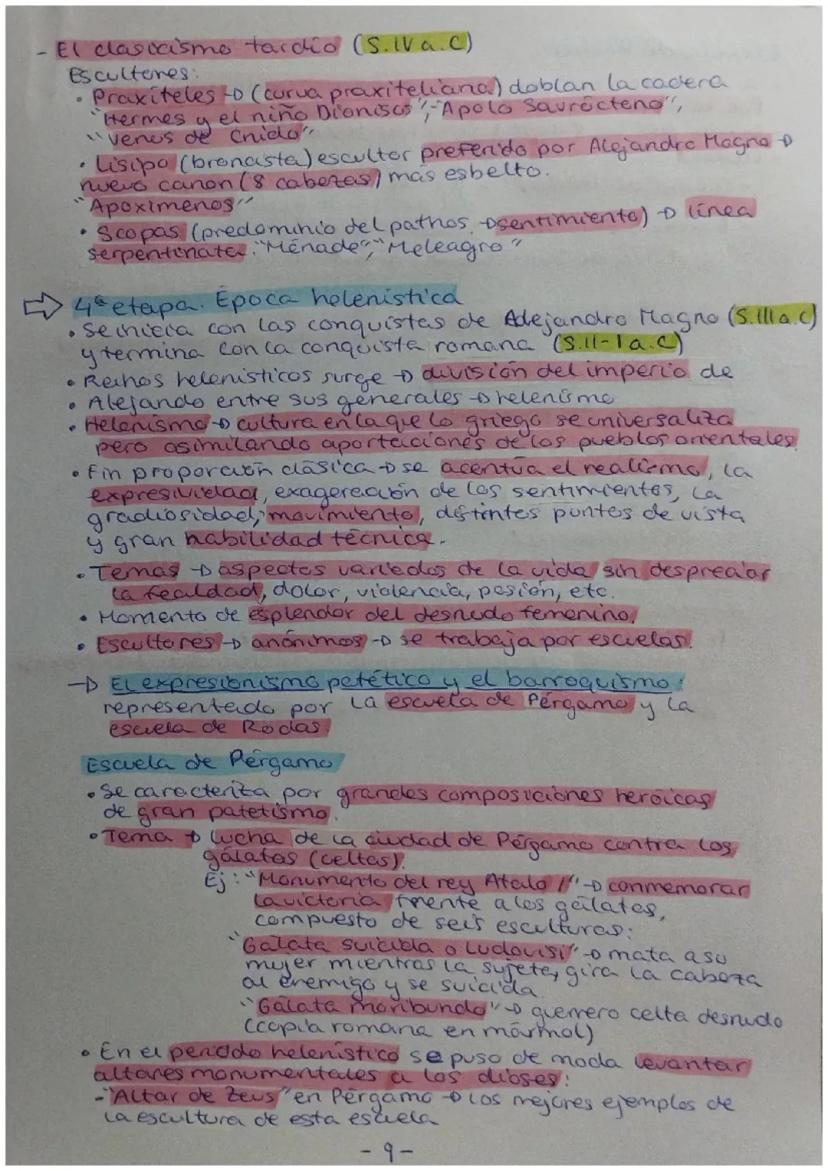 - El clasicismo tardío (S.IV a.C)
Escultores:
• Praxíteles → (curva praxiteliana) doblan la cadera
"Hermes y el niño Dionisos", "Apolo Saurócteno",
"Venus de Cnido"
• Lisipo (broncista) escultor preferido por Alejandro Magno →
nuevo canon (8 cabezas) más esbelto.
"Apoxímenos"
• Scopas (predominio del pathos → sentimiento) → línea
serpentinata. "Ménade", "Meleagro"
⇨ 4ª etapa. Época helenística
• Se inicia con las conquistas de Alejandro Magno (S.III a.C)
y termina con la conquista romana (S.II-I a.C)
• Reinos helenísticos surge → división del imperio de
• Alejando entre sus generales → helenismo
• Helenismo → cultura en la que lo griego se universaliza
pero asimilando aportaciones de los pueblos orientales.
• Fin proporción clásica → se acentúa el realismo, la
expresividad, exagereación de los sentimientos, la
gradiosidad, movimiento, distintes puntos de vista
y gran habilidad técnica.
• Temas → aspectos variados de la vida sin despreciar
la fealdad, dolor, violencia, pasión, etc.
• Momento de esplendor del desnudo femenino.
• Escultores → anónimos → se trabaja por escuelas.
→ El expresionismo patético y el barroquismo:
representado por la escuela de Pérgamo y la
escuela de Rodas
Escuela de Pérgamo
• Se caracteriza por grandes composiciones heróicas
de gran patetismo.
• Tema → lucha de la ciudad de Pérgamo contra los
gálatas (celtas).
Ej: "Monumento del rey Atalo I" → conmemorar
la victoria frente a los gálatas,
compuesto de seis esculturas:
"Gálata suicida o Ludovisi" → mata a su
mujer mientras la sujeta, gira la cabeza
al enemigo y se suicida
"Gálata moribundo" → guerrero celta desnudo
(copia romana en mármol)
• En el periodo helenístico se puso de moda levantar
altares monumentales a los dioses:
- "Altar de Zeus" en Pérgamo → los mejores ejemplos de
la escultura de esta escuela
- 9 -